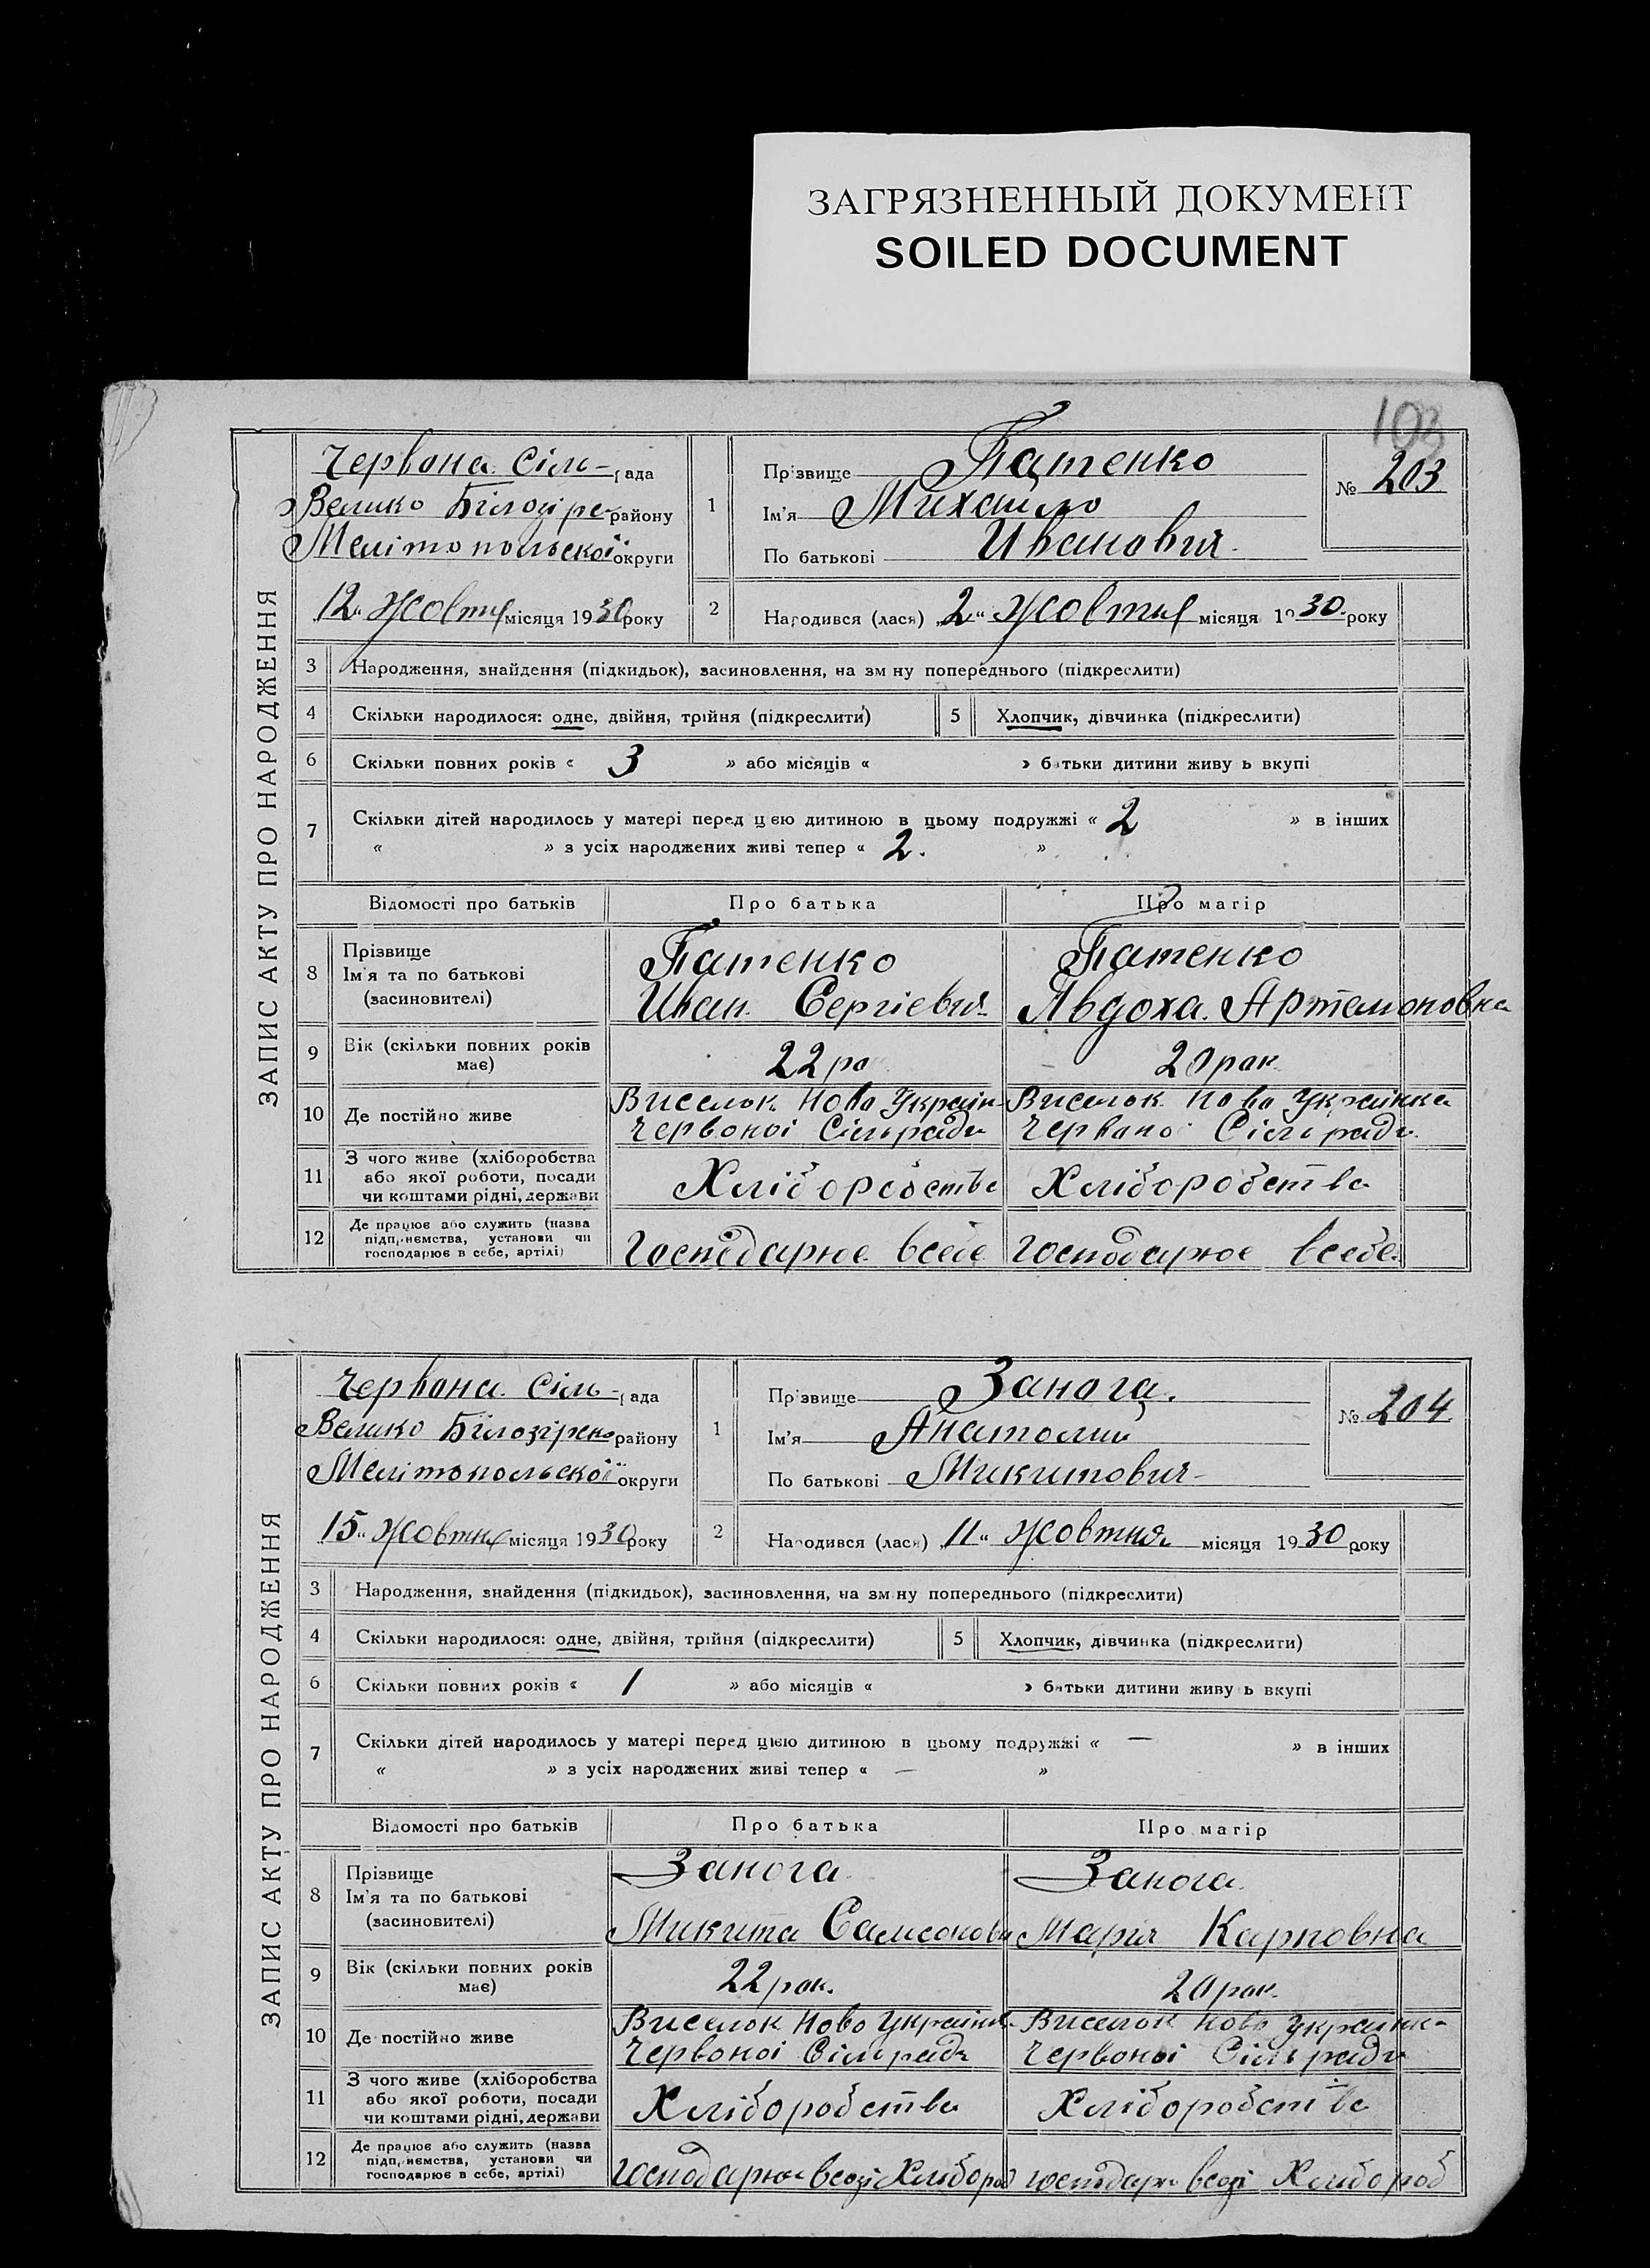 ЗАГРЯЗНЕННЫЙ ДОКУМЕНТ
SOILED DOCUMENT
103
ЗАПИС АКТУ ПРО НАРОДЖЕННЯ
Червона Сіль- рада
Велико Білозірс району
Мелітопольської округи
12 " Жовтня місяця 1930 року
1
Прізвище Патенко
Ім'я Михайло
По батькові Иванович
№ 203
2
Народився (лася) „2" Жовтня місяця 1930 року
3 Народження, знайдення (підкидьок), засиновлення, на зм ну попереднього (підкреслити)
4 Скільки народилося: одне, двійня, трійня (підкреслити) 5 Хлопчик, дівчинка (підкреслити)
6 Скільки повних років « 3 » або місяців « » батьки дитини живу ь вкупі
7 Скільки дітей народилось у матері перед цією дитиною в цьому подружжі « 2 » в інших
« » з усіх народжених живі тепер « 2. »
Відомості про батьків Про батька Про матір
8 Прізвище
Ім'я та по батькові
(засиновителі)
Патенко
Иван Сергіевич
Патенко
Явдоха Артемоновна
9 Вік (скільки повних років
має)
22 ро
20 рок
10 Де постійно живе
Виселок Ново Україн-
Червоноі Сільради
Виселок Ново Українка
Червоноі Сільради
11 З чого живе (хліборобства
або якої роботи, посади
чи коштами рідні, держави
Хліборобства
Хліборобства
12 Де працює або служить (назва
підприємства, установи чи
господарює в себе, артілі)
Господарює всебе
Господарює всебе
ЗАПИС АКТУ ПРО НАРОДЖЕННЯ
Червона Сіль- рада
Велико Білозірсько району
Мелітопольської округи
15 " Жовтня місяця 1930 року
1
Прізвище Занога.
Ім'я Анатолий
По батькові Микитович
№ 204
2
Народився (лася) „11" Жовтня місяця 1930 року
3 Народження, знайдення (підкидьок), засиновлення, на зм ну попереднього (підкреслити)
4 Скільки народилося: одне, двійня, трійня (підкреслити) 5 Хлопчик, дівчинка (підкреслити)
6 Скільки повних років « 1 » або місяців « » батьки дитини живу ь вкупі
7 Скільки дітей народилось у матері перед цією дитиною в цьому подружжі « — » в інших
« » з усіх народжених живі тепер « — »
Відомості про батьків Про батька Про матір
8 Прізвище
Ім'я та по батькові
(засиновителі)
Занога
Микита Самсонови
Занога
Марія Карповна
9 Вік (скільки повних років
має)
22 рок.
20 рок.
10 Де постійно живе
Виселок Ново Україна
Червоноі Сільради
Виселок Ново Українка
Червоноі Сільради
11 З чого живе (хліборобства
або якої роботи, посади
чи коштами рідні, держави
Хліборобства
Хліборобства
12 Де працює або служить (назва
підприємства, установи чи
господарює в себе, артілі)
Господарює Хлібороб
господарює Хлібороб